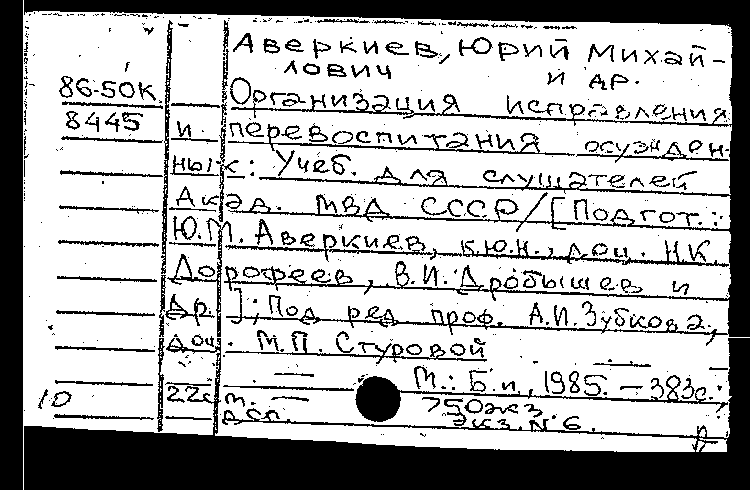 Аверкиев, Юрий Михай-
лович и др.
86-50К Организация исправления
8445 и перевоспитания осужден-
ных: Учеб. для слушателей
Акад. МВД СССР/[Подгот.:
Ю.М. Аверкиев, к.ю.н., доц. Н.К.
Дорофеев, В.И. Дробышев и
др.]; Под ред проф. А.И. Зубкова,
доц. М.П. Стуровой
— М.: Б.и., 1985. — 383с.;
10 22см. — 750экз.
дсп. Экз. N 6.